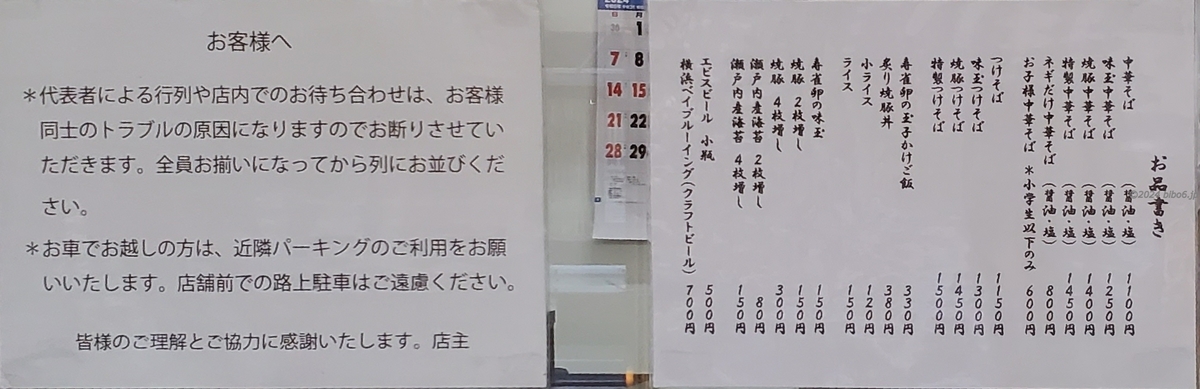 お客様へ
＊代表者による行列や店内でのお待ち合わせは、お客様
同士のトラブルの原因になりますのでお断りさせてい
ただきます。全員お揃いになってから列にお並びくだ
さい。
＊お車でお越しの方は、近隣パーキングのご利用をお願
いいたします。店舗前での路上駐車はご遠慮ください。
皆様のご理解とご協力に感謝いたします。店主
2024
日 月
1
7 8
14 15
21 22
28 29
お品書き
中華そば （醤油・塩） 1100円
味玉中華そば （醤油・塩） 1250円
焼豚中華そば （醤油・塩） 1400円
特製中華そば （醤油・塩） 1450円
ネギだけ中華そば （醤油・塩） 800円
お子様中華そば ＊小学生以下のみ 600円
つけそば 1150円
味玉つけそば 1300円
焼豚つけそば 1450円
特製つけそば 1500円
寿雀卵の玉子かけご飯 330円
炙り焼豚丼 380円
小ライス 120円
ライス 150円
寿雀卵の味玉 150円
焼豚 2枚増し 150円
焼豚 4枚増し 300円
瀬戸内産海苔 2枚増し 80円
瀬戸内産海苔 4枚増し 150円
エビスビール 小瓶 500円
横浜ベイブルーイング(クラフトビール) 700円
©2024 bibo6.jp